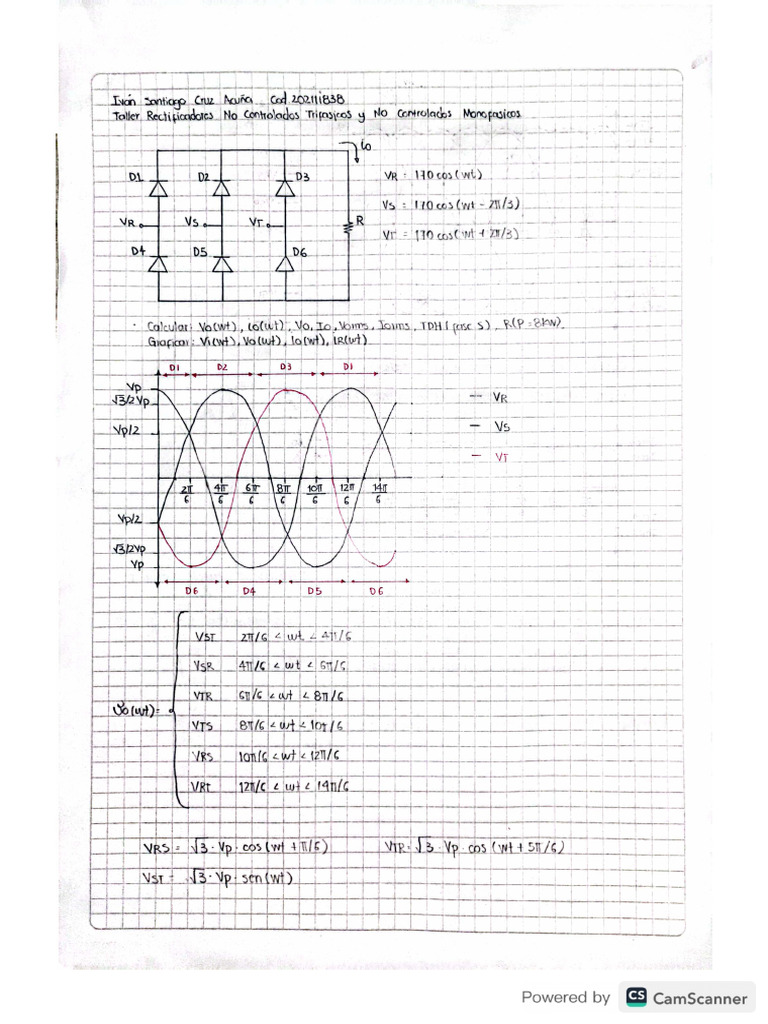 Iván Santiago Cruz Acuña Cod. 202111838
Taller Rectificadores No Controlados Trifasicos y No Controlados Monofasicos
io
D1 D2 D3
VR = 170 cos(wt)
VS = 170 cos(wt - 2π/3)
VR VS VT R
VT = 170 cos(wt + 2π/3)
D4 D5 D6
· Calcular: Vo(wt), io(wt), Vo, Io, Vorms, Iorms, TDHi (fase S), R(P=8kW)
Graficar: Vi(wt), Vo(wt), Io(wt), iR(wt)
D1 D2 D3 D1
Vp
√3/2Vp
Vp/2
VR
VS
VT
2π/6 4π/6 6π/6 8π/6 10π/6 12π/6 14π/6
Vp/2
√3/2Vp
Vp
D6 D4 D5 D6
VST 2π/6 < wt < 4π/6
VSR 4π/6 < wt < 6π/6
VTR 6π/6 < wt < 8π/6
Vo(wt)=
VTS 8π/6 < wt < 10π/6
VRS 10π/6 < wt < 12π/6
VRT 12π/6 < wt < 14π/6
VRS = √3 · Vp · cos(wt + π/6) VTR = √3 · Vp · cos(wt + 5π/6)
VST = √3 · Vp · sen(wt)
Powered by CS CamScanner